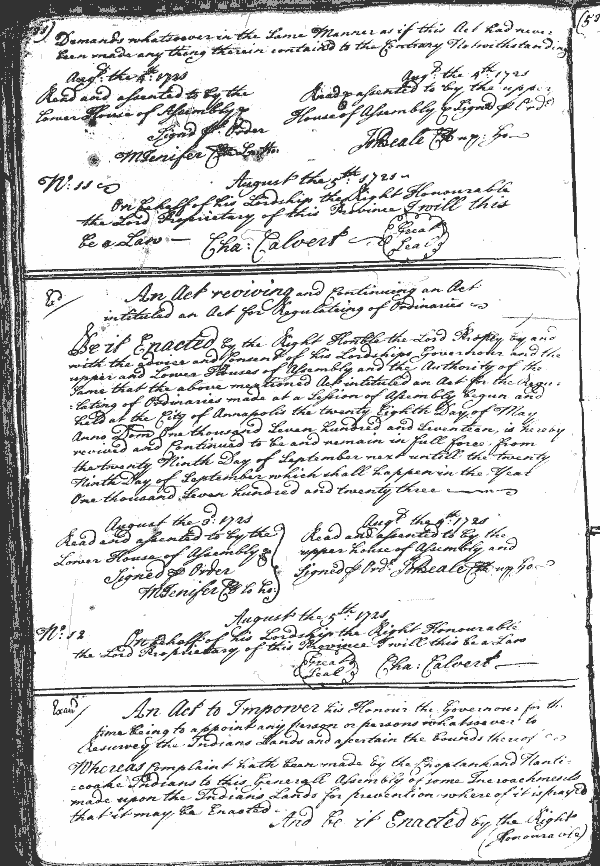 Demands whatsoever in the Same Manner as if this Act had never
been made any thing therein contained to the Contrary Notwithstanding
Augt. the 4th. 1721
Read and assented to by the
Lower House of Assembly
Signd p Order
MJenifer
Augt. the 4th. 1721
Read & assented to by the upper
House of Assembly & Signd p Ordr
Beale
No. 11
August the 5th 1721
On behalf of his Lordship the Right Honourable
the Lord Proprietary of this Province I will this
be a Law
Cha: Calvert
Great
Seal
An Act reviving and Continuing an Act
intituled an Act for Regulateing of Ordinaries
Be it Enacted by the Right Honble the Lord Propry by and
with the advice and Consent of his Lordships Governour and the
upper and Lower Houses of Assembly and the Authority of the
Same that the above mentioned Act intituled an Act for the Regu-
-lating of Ordinaries made at a Session of Assembly begun and
held at the City of Annapolis the twenty Eighth Day of May
Anno Dom One thousand Seven Hundred and Seventeen, is hereby
revived and Continued to be and remain in full force from
the twenty Ninth Day of September next untill the twenty
Ninth Day of September which shall happen in the Year
One thousand Seven hundred and twenty three
August the 3d. 1721
Read and assented to by the
Lower House of Assembly
Signed p Order
MJenifer Cl Lo ho:
Augt. the 4th. 1721
Read and assented to by the
upper house of Assembly and
Signed p Ordr. Beale Cl up ho
August the 5th 1721
No. 12
On behalf of his Lordship the Right Honourable
the Lord Proprietary of this Province I will this be a Law
Great
Seal
Cha: Calvert
Exd
An Act to Impower his Honour the Governour for the
time being to appoint any person or persons whatsoever to
resurvey the Indians Lands and ascertain the bounds thereof
Whereas Complaint hath been made by the Choptank and Nanti-
-coake Indians to this Generall Assembly of some Incroachments
made upon the Indians Lands for prevention whereof it is prayed
that it may be Enacted
And be it Enacted by the Right
(Honourable